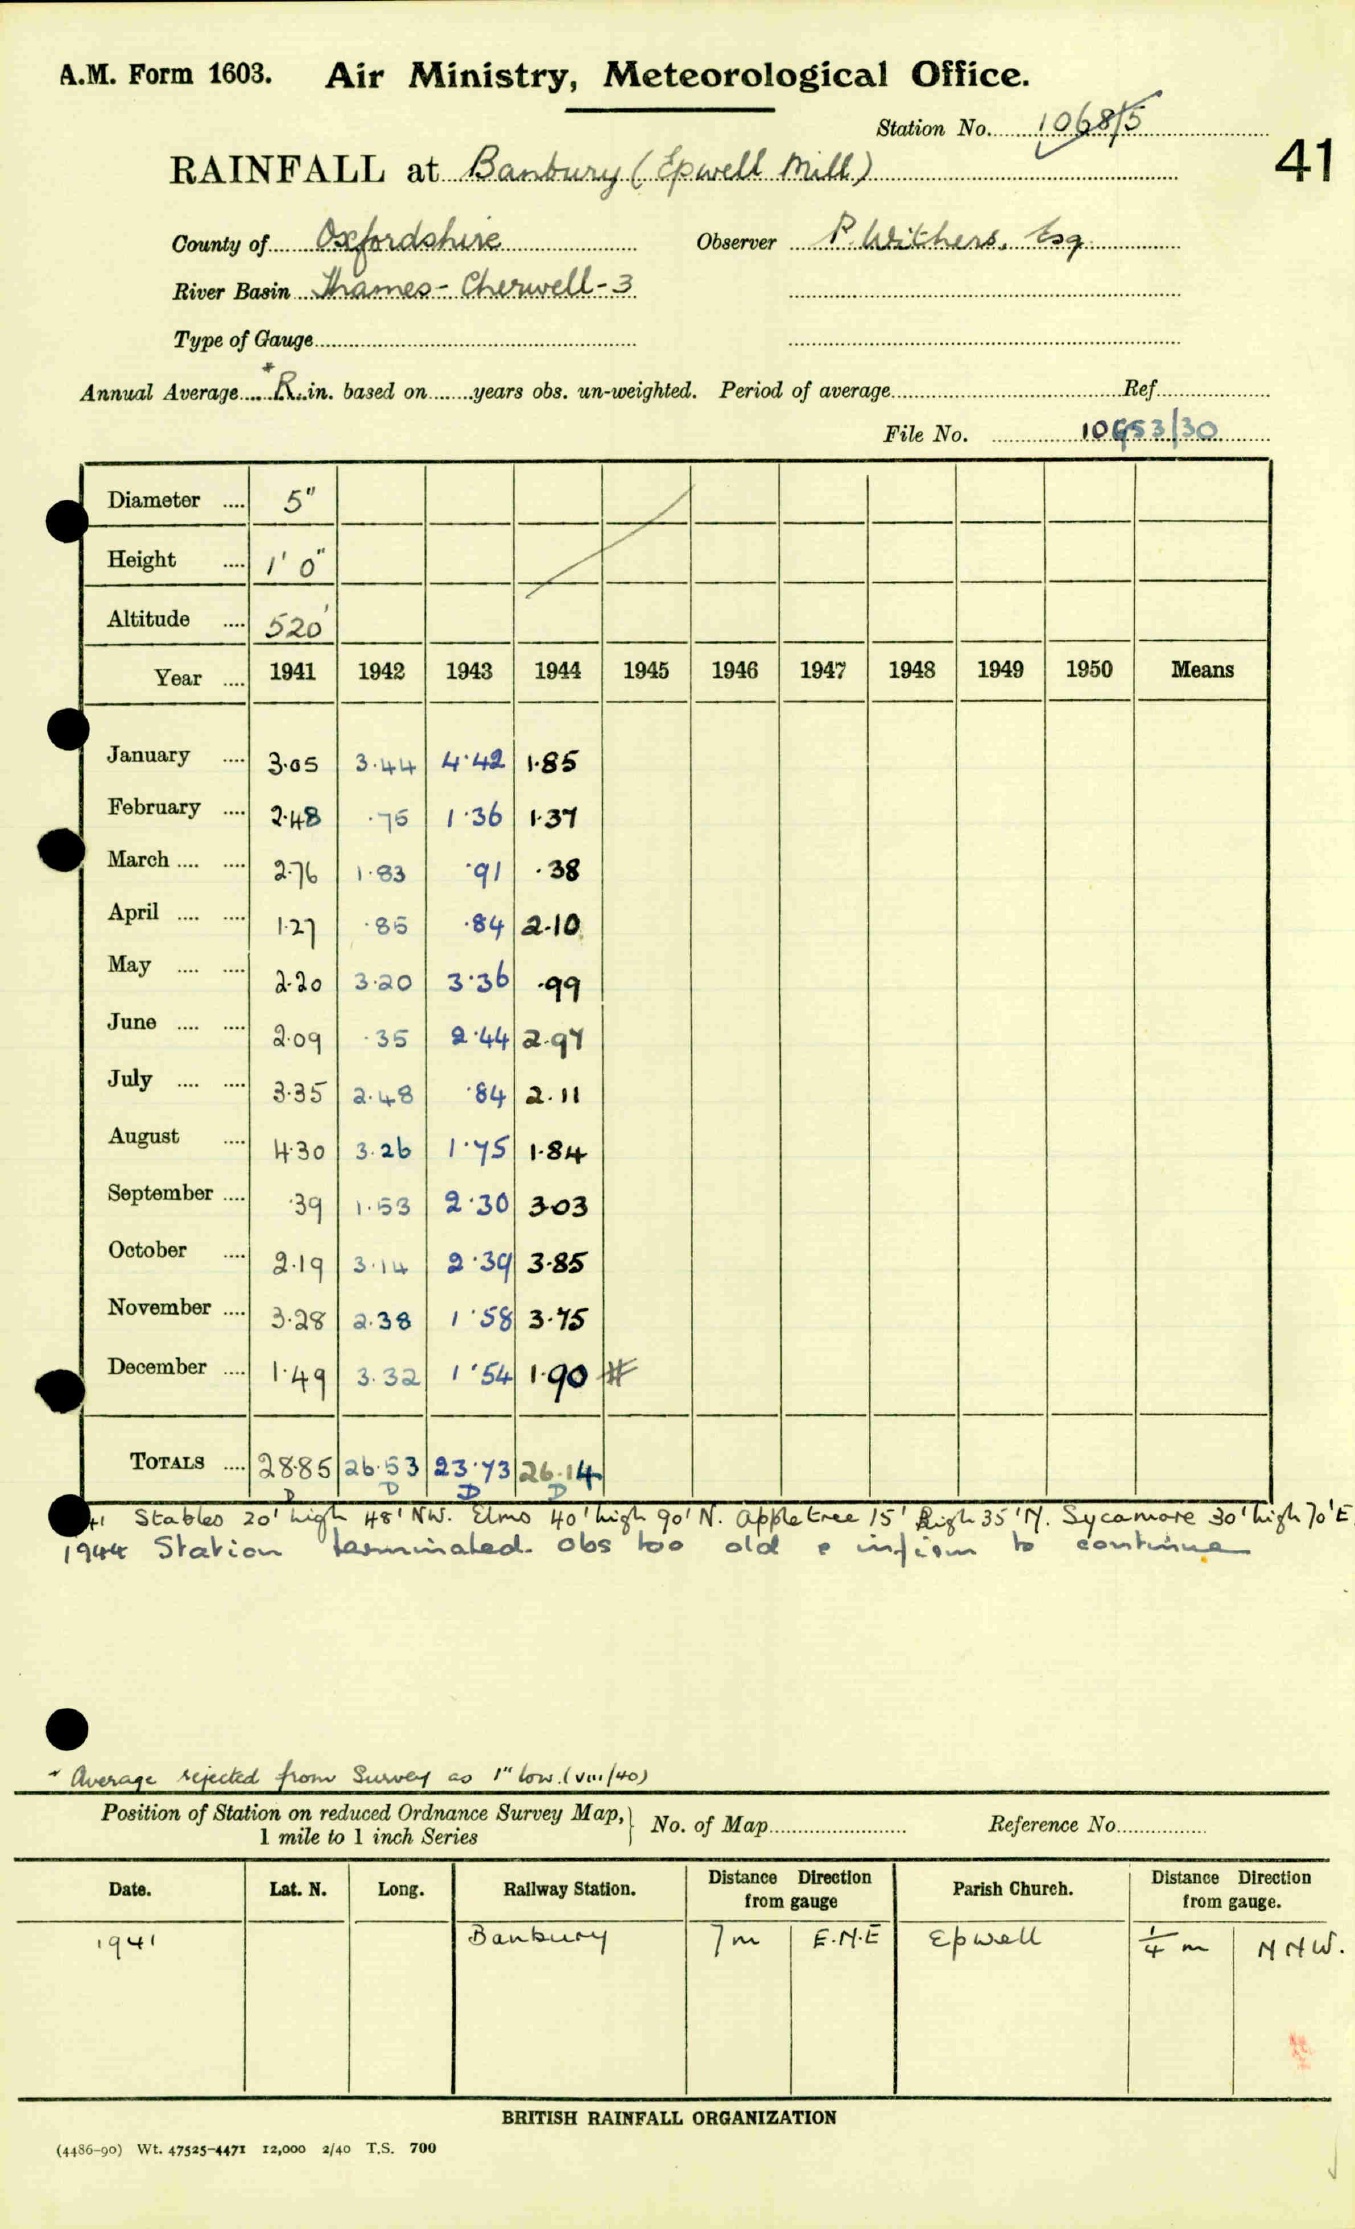 A.M. Form 1603. Air Ministry, Meteorological Office.
Station No. 1068/5
41
RAINFALL at Banbury (Epwell Mill)
County of Oxfordshire Observer P. Withers, Esq
River Basin Thames - Cherwell - 3
Type of Gauge
Annual Average *R. in. based on years obs. un-weighted. Period of average Ref
File No. 10653/30
Diameter .... 5"
Height .... 1' 0"
Altitude .... 520'
Year .... 1941 1942 1943 1944 1945 1946 1947 1948 1949 1950 Means
January .... 3.05 3.44 4.42 1.85
February .... 2.48 .75 1.36 1.37
March .... .... 2.76 1.83 .91 .38
April .... .... 1.27 .85 .84 2.10
May .... .... 2.20 3.20 3.36 .99
June .... .... 2.09 .35 2.44 2.97
July .... .... 3.35 2.48 .84 2.11
August .... 4.30 3.26 1.75 1.84
September .... .39 1.53 2.30 3.03
October .... 2.19 3.14 2.39 3.85
November .... 3.28 2.38 1.58 3.75
December .... 1.49 3.32 1.54 1.90 #
TOTALS .... 28.85 26.53 23.73 26.14
D D D D
41 Stables 20' high 48' NW. Elms 40' high 90' N. Apple tree 15' high 35' N. Sycamore 30' high 70' E.
1944 Station terminated. Obs too old & infirm to continue
* Average rejected from Survey as 1" low. (viii/40)
Position of Station on reduced Ordnance Survey Map, 1 mile to 1 inch Series } No. of Map Reference No.
Date. Lat. N. Long. Railway Station. Distance Direction from gauge Parish Church. Distance Direction from gauge.
1941 Banbury 7m E.N.E Epwell 1/4 m NNW.
BRITISH RAINFALL ORGANIZATION
(4486-90) Wt. 47525-4471 12,000 2/40 T.S. 700